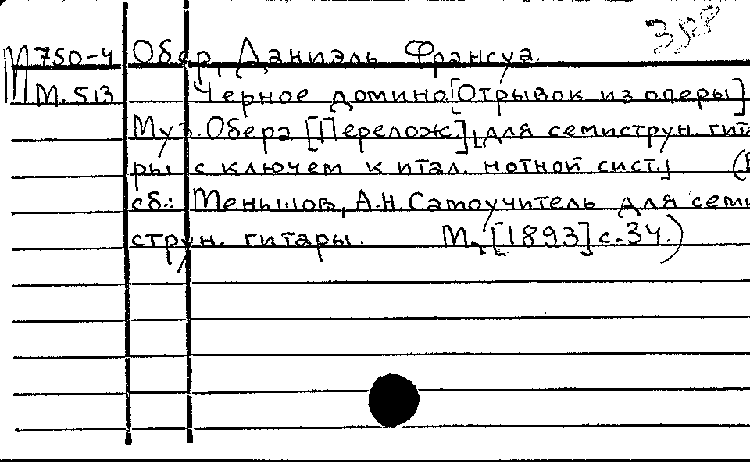 М 750-4 Обер, Даниэль Франсуа.
М. 513 Черное домино [Отрывок из оперы]
Муз. Обера [Перелож.], для семиструн. гита
ры с ключем к итал. нотной сист.] (В
сб.: Меньшов, А.Н. Самоучитель для семи
струн. гитары. М., [1893] с.34.)